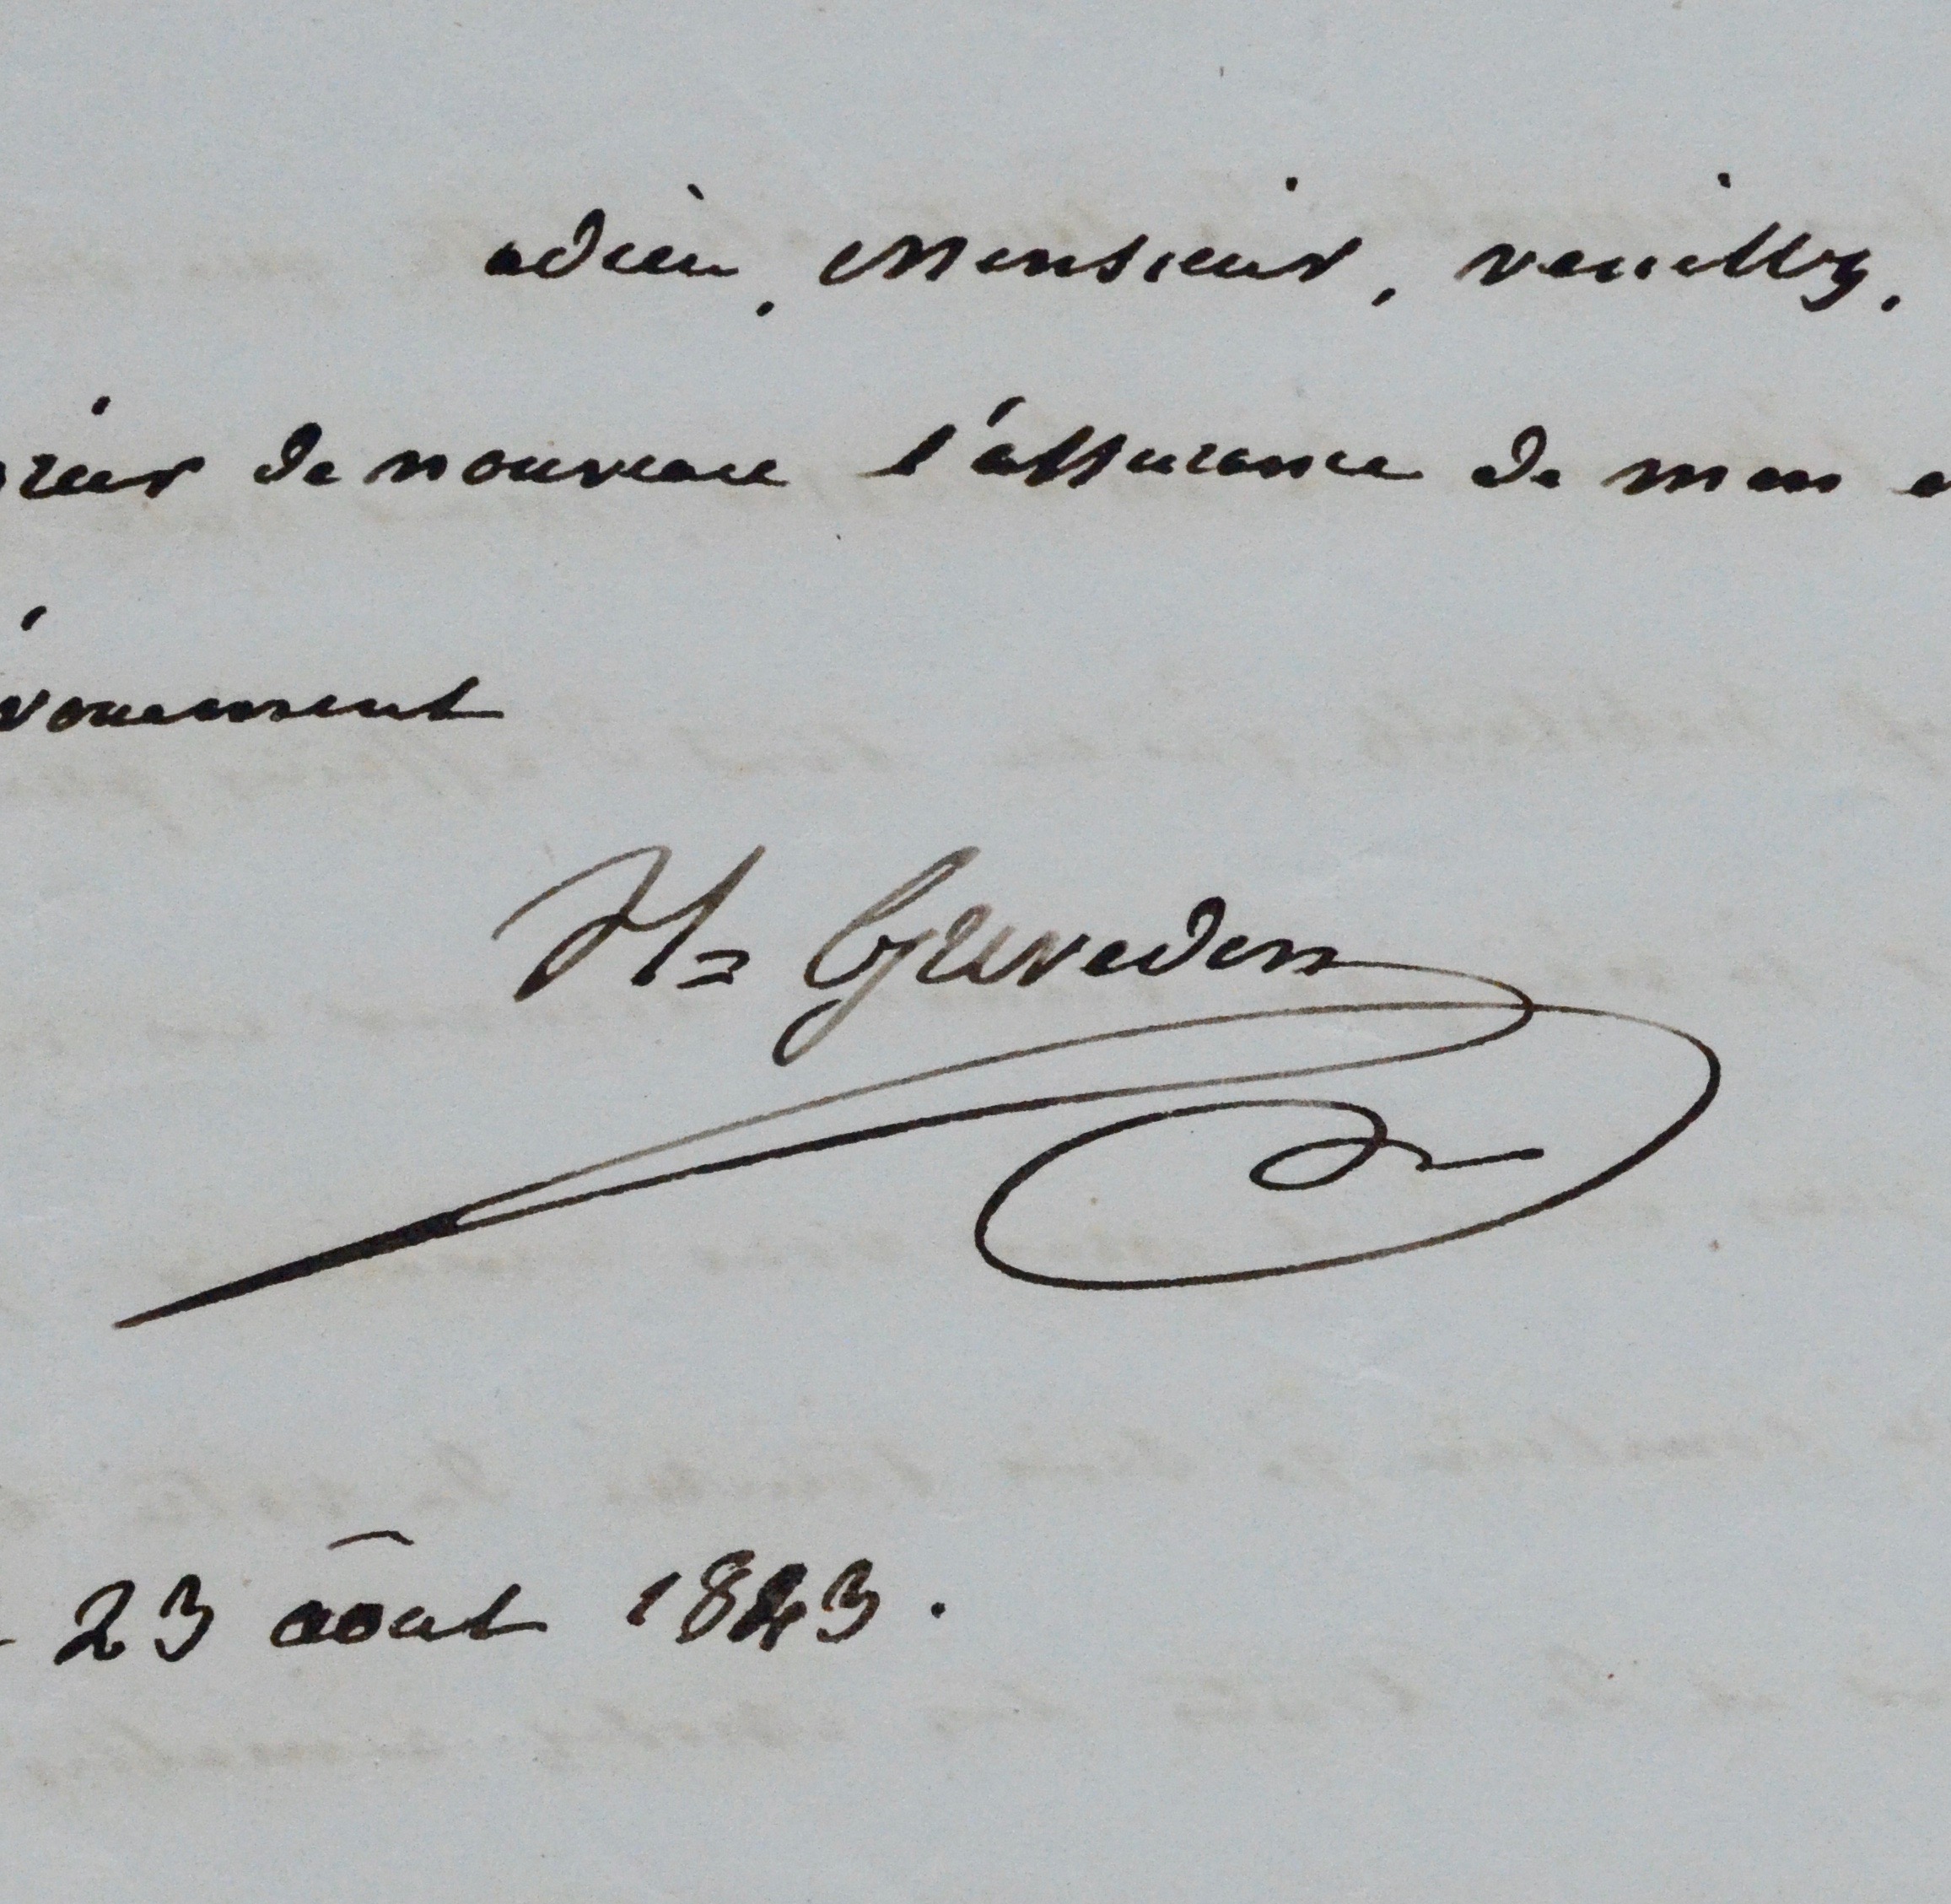 adieu, Monsieur, veuillez,
de nouveau l'assurance de mon
vouement
H= Grevedon
23 août 1843.